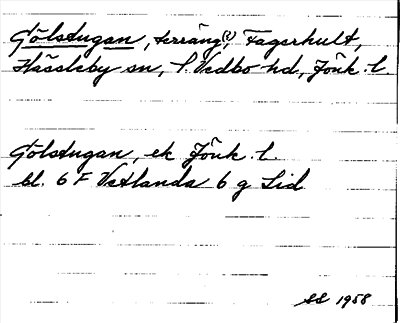 Gölstugan, terräng(?), Fagerhult,
Hässleby sn, S. Vedbo hd, Jönk. l.
Gölstugan, ek Jönk. l.
bl. 6 F Vetlanda 6 g Sid
SS 1958